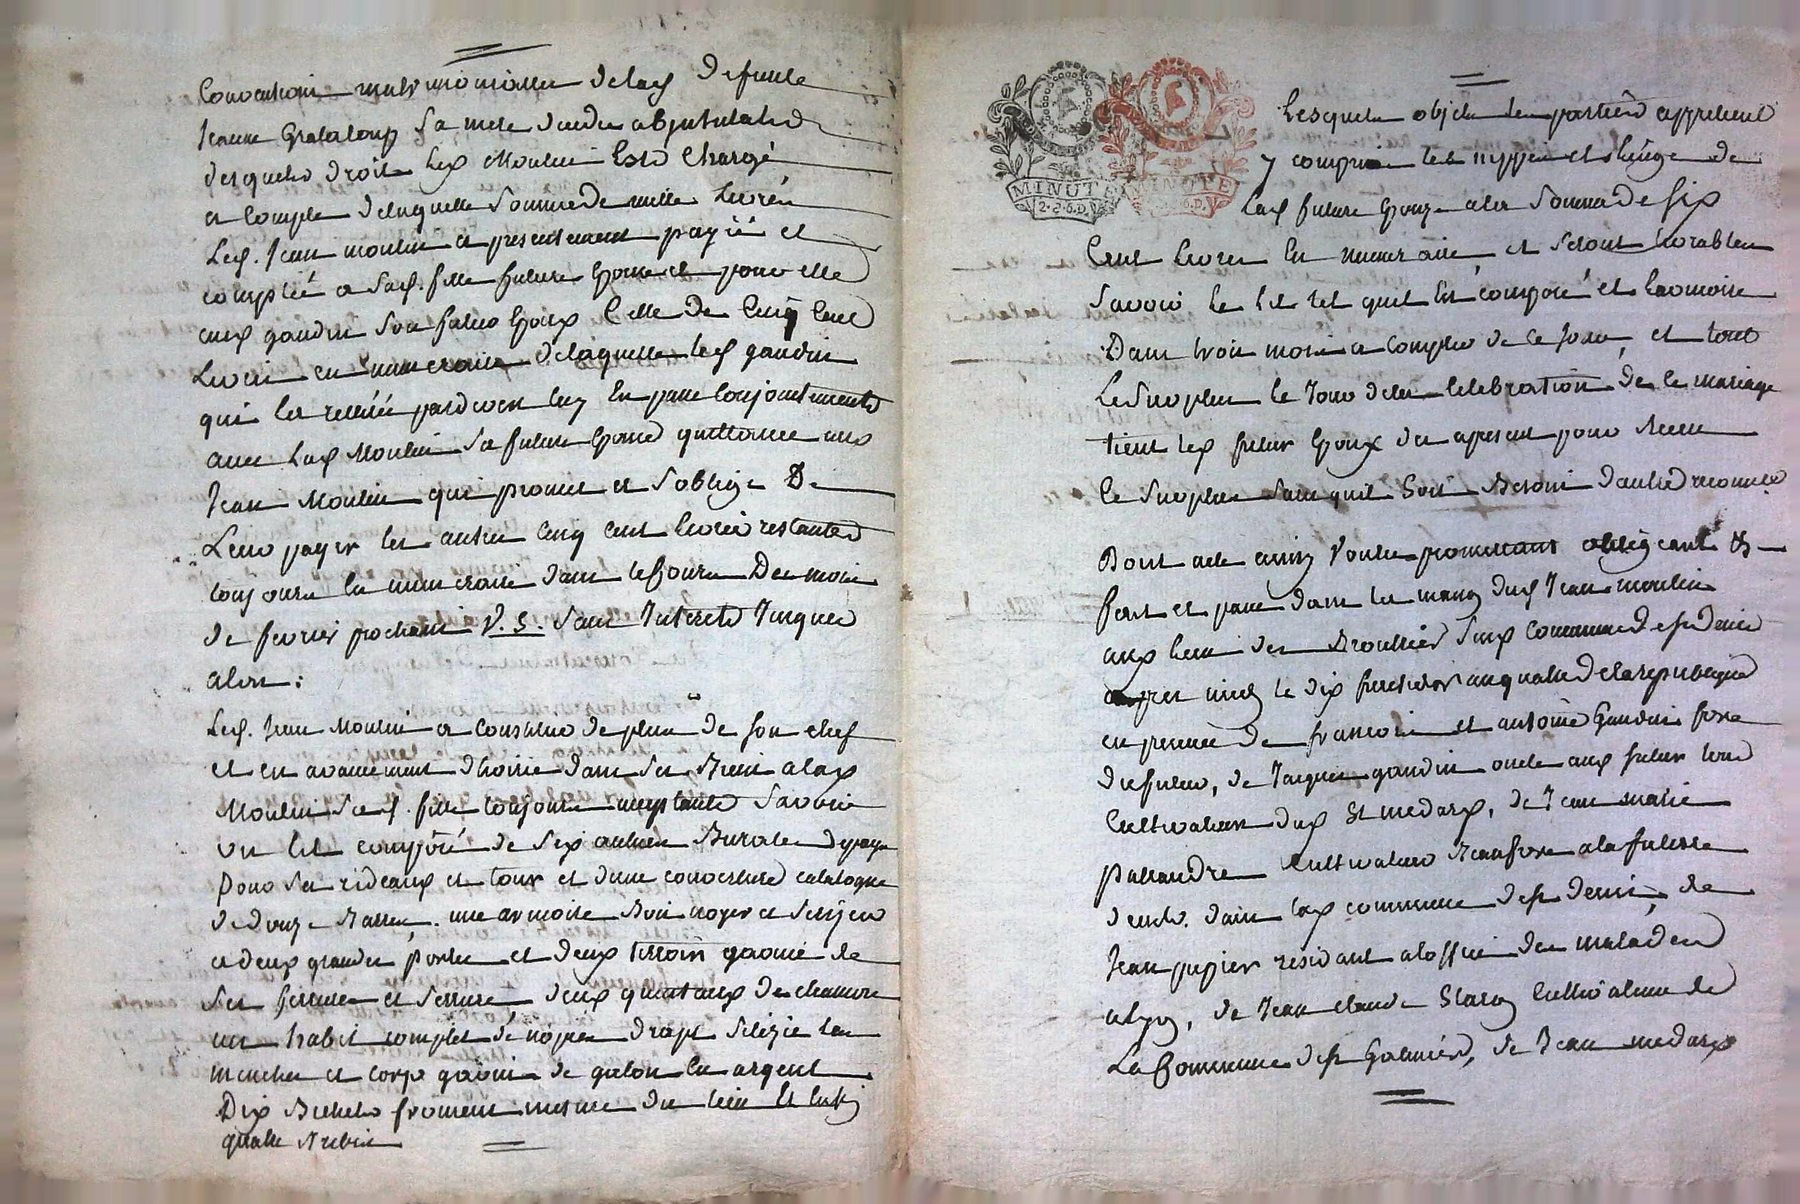 Conventions matrimonialles de lad. defunte
Jeanne Grataloup sa mere
desquels droits led. Moulin est chargé
a compte de laquelle somme de mille livres
Led. Jean moulin a presentement payé et
compté a sad. fille future epouse et pour elle
aud. gaudin son futur epoux celle de cinq cent
Livres en numeraire de laquelle led. gaudin
qui la retirée pardevers luy en passe conjointement
avec lad. Moulin sa future epouse quittance aud.
Jean Moulin qui promet et s'oblige De
Leur payer les autres cinq cent livres restantes
toujours en numeraire dans le cours Du mois
de fevrier prochain V. S. sans Interets Jusques
alors :
Led. Jean Moulin a constitué de plus de son chef
et en avancement d'hoirie dans ses Biens a lad.
Moulin sad. fille toujours acceptante savoir
un lit composé de six aulnes Burate
pour ses rideaux et tour et d'une couverture catalogne
de douze Barres. une armoire Bois noyer et serizier
a deux grandes portes et deux tirroirs garnie de
ses ferrures et serrure, deux quintaux de chanvre
un habit complet de noces drapt silezie les
manches et corps garnis de galon en argent
Dix Bichets froment mesure du lieu et enfin
quatre Brebis
Lesquels objets les parties apprecient
y compris les nippes et linge de
Lad. future epouse a la somme de six
Cent livres en numeraire, et seront livrables
savoir le lit tel qu'il est composé et l'armoire
Dans trois mois a compter de ce jour, et tout
Le surplus le jour de la celebration de ce mariage
tient led. futur epoux des apresent pour receu
le surplus sans qu'il soit Besoin d'autre reconnce
Dont acte ainsy voulu promettant obligeant &
fait et passé dans la maison dud. Jean moulin
aux lieu des Broullies susd. Commune de st denis
apres midy le dix fructidor an quatre de la republique
en presence de francois et antoine Gaudin frere
du futur, de Jacques gaudin oncle aud. futur tous
Cultivateurs dud. St medard, de Jean marie
paleandre cultivateur Beaufrere a la future
demt. dans lad. commune de st denis, de
Jean pupier residant a l'office des malades
a Lyon, de Jean claude Staron cultivateur de
La Commune de st Galmier, de Jean medard
MINUTE
2.S.6.D.
MINUTE
S.6.D.